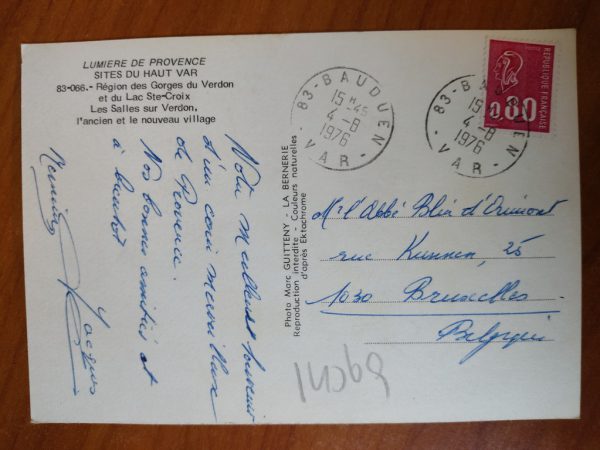 LUMIERE DE PROVENCE
SITES DU HAUT VAR
83-066.- Région des Gorges du Verdon
et du Lac Ste-Croix
Les Salles sur Verdon,
l'ancien et le nouveau village
Notre Meilleur Souvenir
d'un coin Merveilleux
de Provence.
Nos bonnes amitiés et
à bientôt
Jacques
Photo Marc GUITTENY - LA BERNERIE
Reproduction interdite - Couleurs naturelles
d'après Ektachrome
83-BAUDUEN
15 H 45
4-8
1976
- VAR -
83-BAUDUEN
15
4-8
1976
- VAR -
REPUBLIQUE FRANÇAISE
0,80
Mr l'Abbé
rue 25
1030 Bruxelles
Belgique
14069